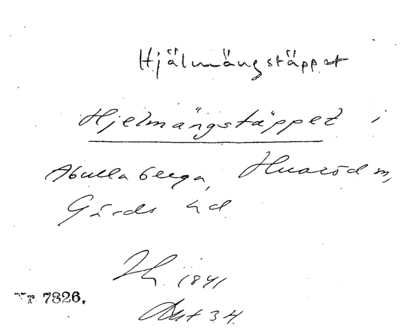 Hjälmängstäppet
Hjelmängstäppet i
Abullaberga, Huaröd sn,
Gärds hd
Lh. 1841
Akt 34.
Nr 7826.